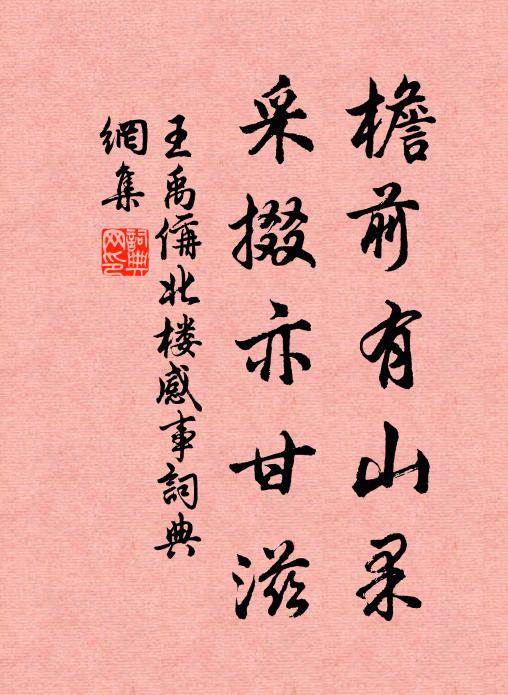 檐前有山果
采掇亦甘滋
王禹偁北楼感事詞典
網集
詞典
网印